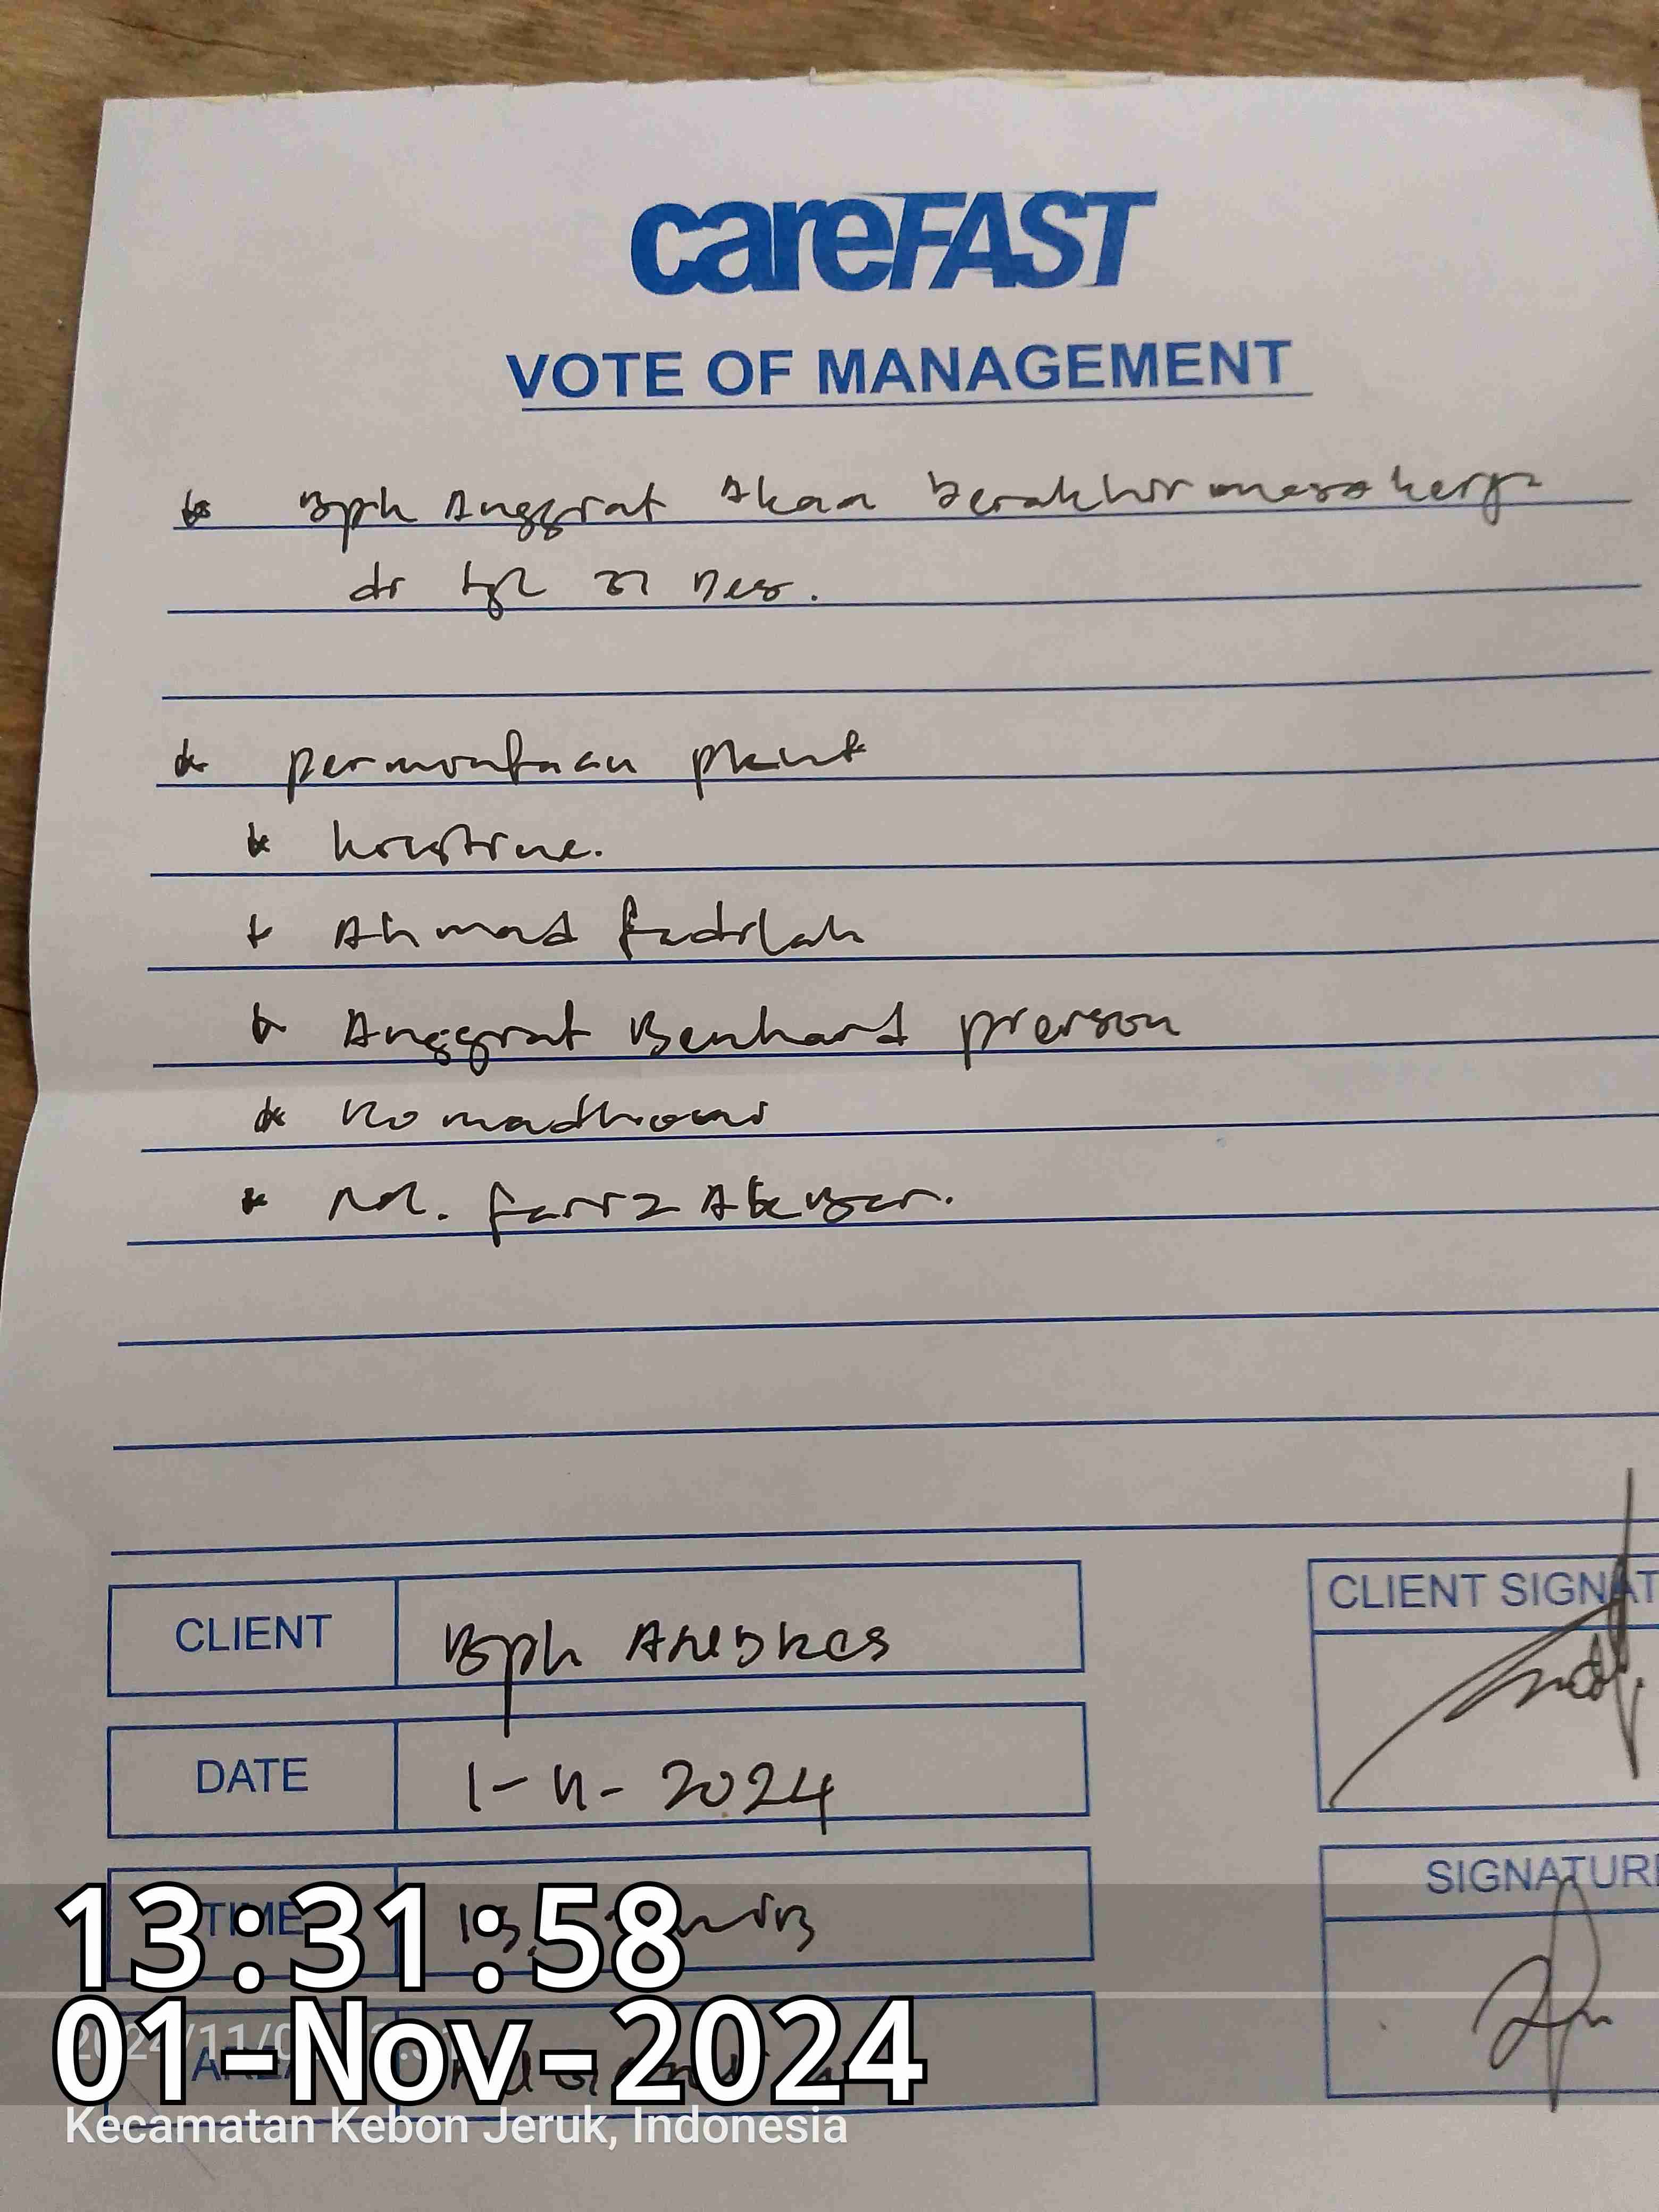 careFAST
VOTE OF MANAGEMENT
* Bpk Anggiat Akan berakhir masa kerja
di tgl Des.
* permintaan
* kristine.
* Ahmad fadilah
* Anggiat Benhard pierson
* Romadhoni
* M. fariz Akbar.
CLIENT Bpk
CLIENT SIGNAT
DATE 1-11-2024
TIME
SIGNATURE
13:31:58
01-Nov-2024
Kecamatan Kebon Jeruk, Indonesia